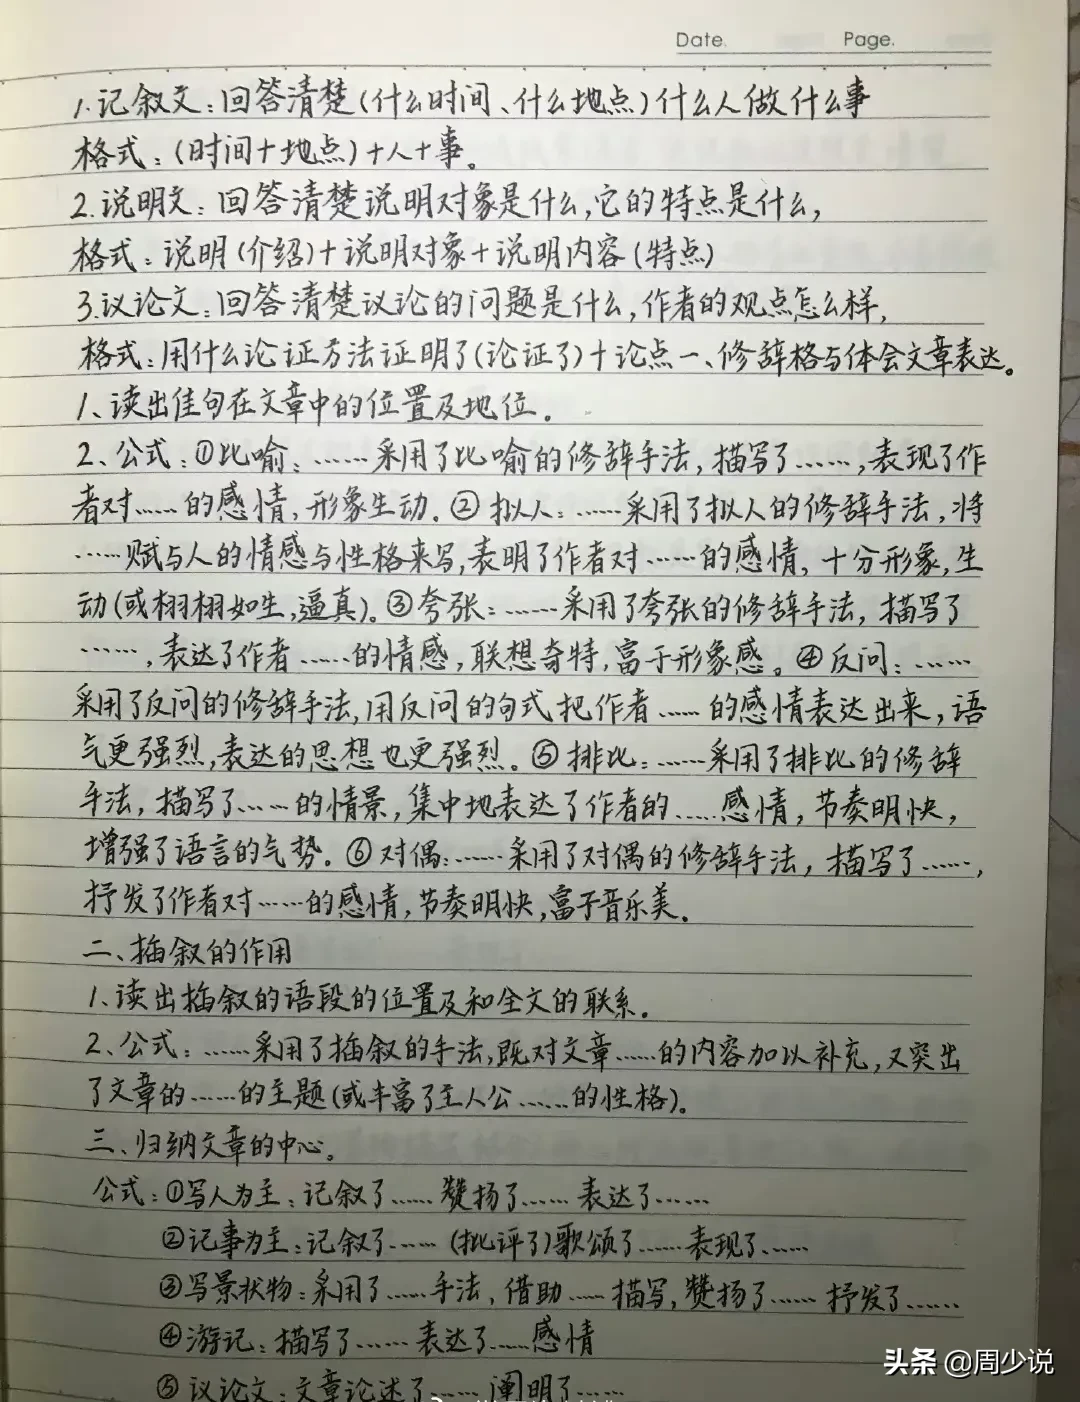 Date. Page.
1.记叙文:回答清楚(什么时间、什么地点)什么人做什么事
格式:(时间+地点)+人+事。
2.说明文:回答清楚说明对象是什么,它的特点是什么,
格式:说明(介绍)+说明对象+说明内容(特点)
3.议论文:回答清楚议论的问题是什么,作者的观点怎么样,
格式:用什么论证方法证明了(论证了)+论点一、修辞格与体会文章表达。
1、读出佳句在文章中的位置及地位。
2、公式:①比喻:……采用了比喻的修辞手法,描写了……,表现了作
者对……的感情,形象生动。②拟人:……采用了拟人的修辞手法,将
……赋与人的情感与性格来写,表明了作者对……的感情,十分形象,生
动(或栩栩如生,逼真)。③夸张:……采用了夸张的修辞手法,描写了
……,表达了作者……的情感,联想奇特,富于形象感。④反问:……
采用了反问的修辞手法,用反问的句式把作者……的感情表达出来,语
气更强烈,表达的思想也更强烈。⑤排比:……采用了排比的修辞
手法,描写了……的情景,集中地表达了作者的……感情,节奏明快,
增强了语言的气势。⑥对偶:……采用了对偶的修辞手法,描写了……,
抒发了作者对……的感情,节奏明快,富于音乐美。
二、插叙的作用
1、读出插叙的语段的位置及和全文的联系。
2、公式:……采用了插叙的手法,既对文章……的内容加以补充,又突出
了文章的……的主题(或丰富了主人公……的性格)。
三、归纳文章的中心。
公式:①写人为主:记叙了……赞扬了……表达了……
②记事为主:记叙了……(批评了)歌颂了……表现了……
③写景状物:采用了……手法,借助……描写,赞扬了……抒发了……
④游记:描写了……表达了……感情
⑤议论文:文章论述了……阐明了……
头条 @周少说